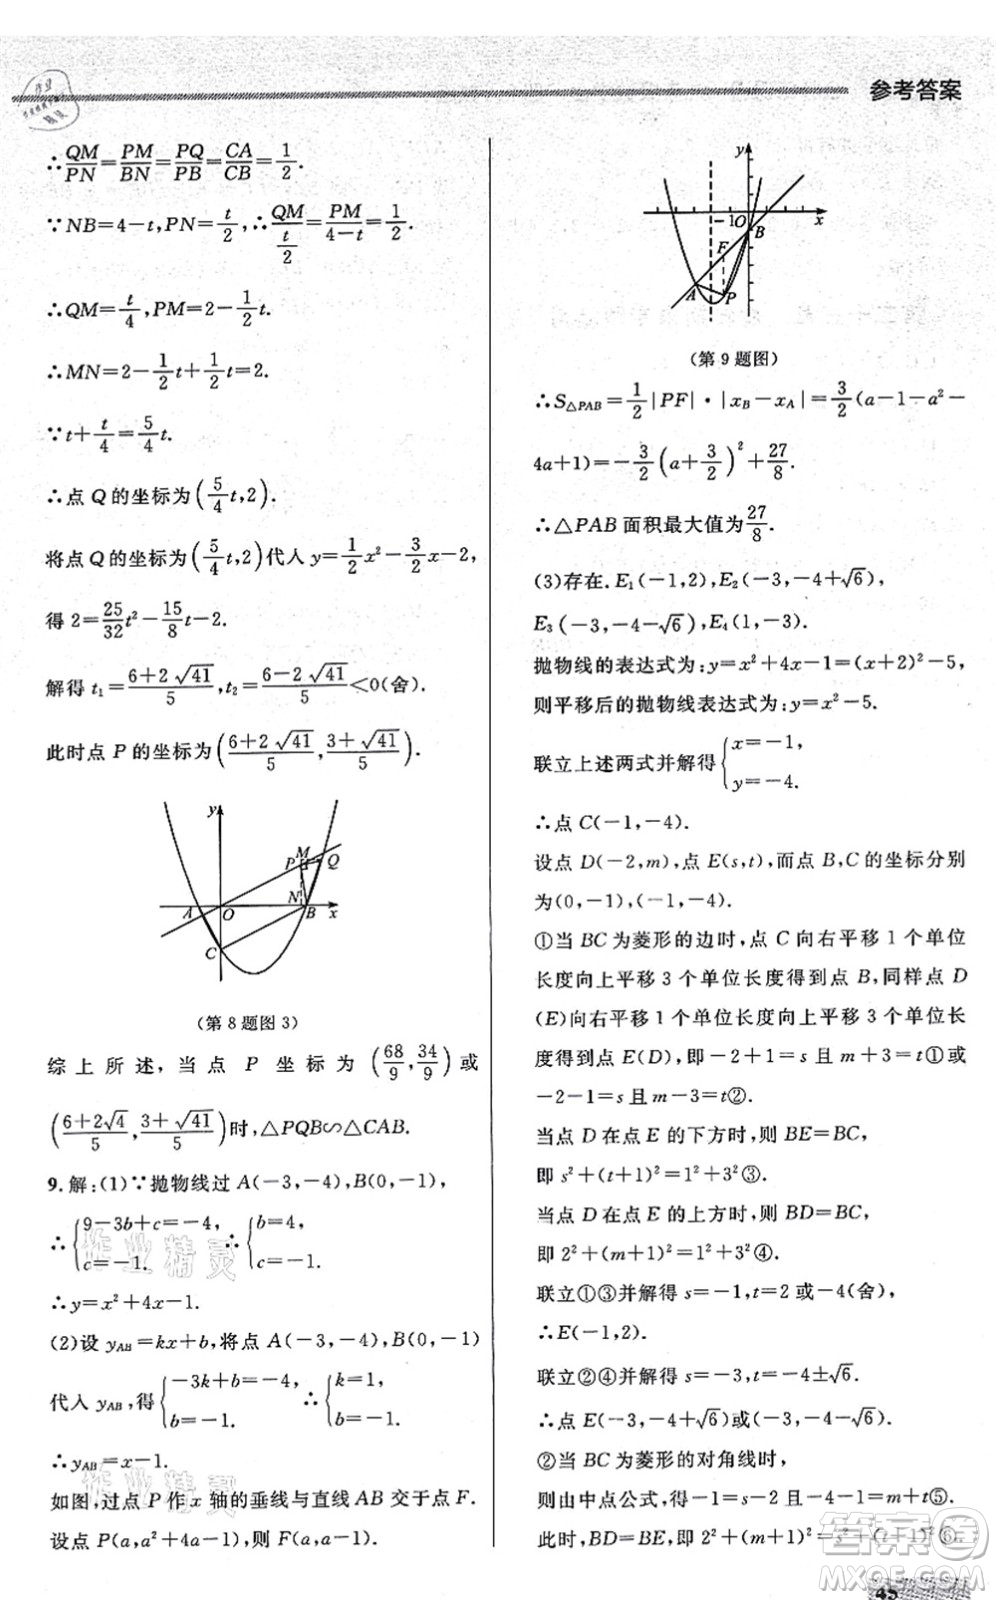 参考答案
∴QM/PN=PM/BN=PQ/PB=CA/CB=1/2.
∵NB=4-t,PN=t/2,∴QM/(t/2)=PM/(4-t)=1/2.
∴QM=t/4,PM=2-1/2t.
∴MN=2-1/2t+1/2t=2.
∵t+t/4=5/4t.
∴点Q的坐标为(5/4t,2).
将点Q的坐标为(5/4t,2)代入y=1/2x²-3/2x-2,
得2=25/32t²-15/8t-2.
解得t₁=(6+2√41)/5,t₂=(6-2√41)/5<0(舍).
此时点P的坐标为((6+2√41)/5,(3+√41)/5).
y
M
P
Q
N
A
O
B
x
C
(第8题图3)
综上所述,当点P坐标为(68/9,34/9)或
((6+2√4)/5,(3+√41)/5)时,△PQB∽△CAB.
9.解:(1)∵抛物线过A(-3,-4),B(0,-1),
∴{9-3b+c=-4, c=-1. ∴{b=4, c=-1.
∴y=x²+4x-1.
(2)设yAB=kx+b,将点A(-3,-4),B(0,-1)
代入yAB,得{-3k+b=-4, b=-1. ∴{k=1, b=-1.
∴yAB=x-1.
如图,过点P作x轴的垂线与直线AB交于点F.
设点P(a,a²+4a-1),则F(a,a-1).
y
-1
O
x
B
F
A
P
(第9题图)
∴S△PAB=1/2|PF|·|xB-xA|=3/2(a-1-a²-
4a+1)=-3/2(a+3/2)²+27/8.
∴△PAB面积最大值为27/8.
(3)存在.E₁(-1,2),E₂(-3,-4+√6),
E₃(-3,-4-√6),E₄(1,-3).
抛物线的表达式为:y=x²+4x-1=(x+2)²-5,
则平移后的抛物线表达式为:y=x²-5.
联立上述两式并解得{x=-1, y=-4.
∴点C(-1,-4).
设点D(-2,m),点E(s,t),而点B,C的坐标分别
为(0,-1),(-1,-4).
①当BC为菱形的边时,点C向右平移1个单位
长度向上平移3个单位长度得到点B,同样点D
(E)向右平移1个单位长度向上平移3个单位
长度得到点E(D),即-2+1=s且m+3=t①或
-2-1=s且m-3=t②.
当点D在点E的下方时,则BE=BC,
即s²+(t+1)²=1²+3²③.
当点D在点E的上方时,则BD=BC,
即2²+(m+1)²=1²+3²④.
联立①③并解得s=-1,t=2或-4(舍),
∴E(-1,2).
联立②④并解得s=-3,t=-4±√6.
∴点E(-3,-4+√6)或(-3,-4-√6).
②当BC为菱形的对角线时,
则由中点公式,得-1=s-2,-4-1=m+t⑤.
此时,BD=BE,即2²+(m+1)²=s²+(t+1)²⑥.
45
作业精灵
作业精灵
答案圈
MXQE.COM